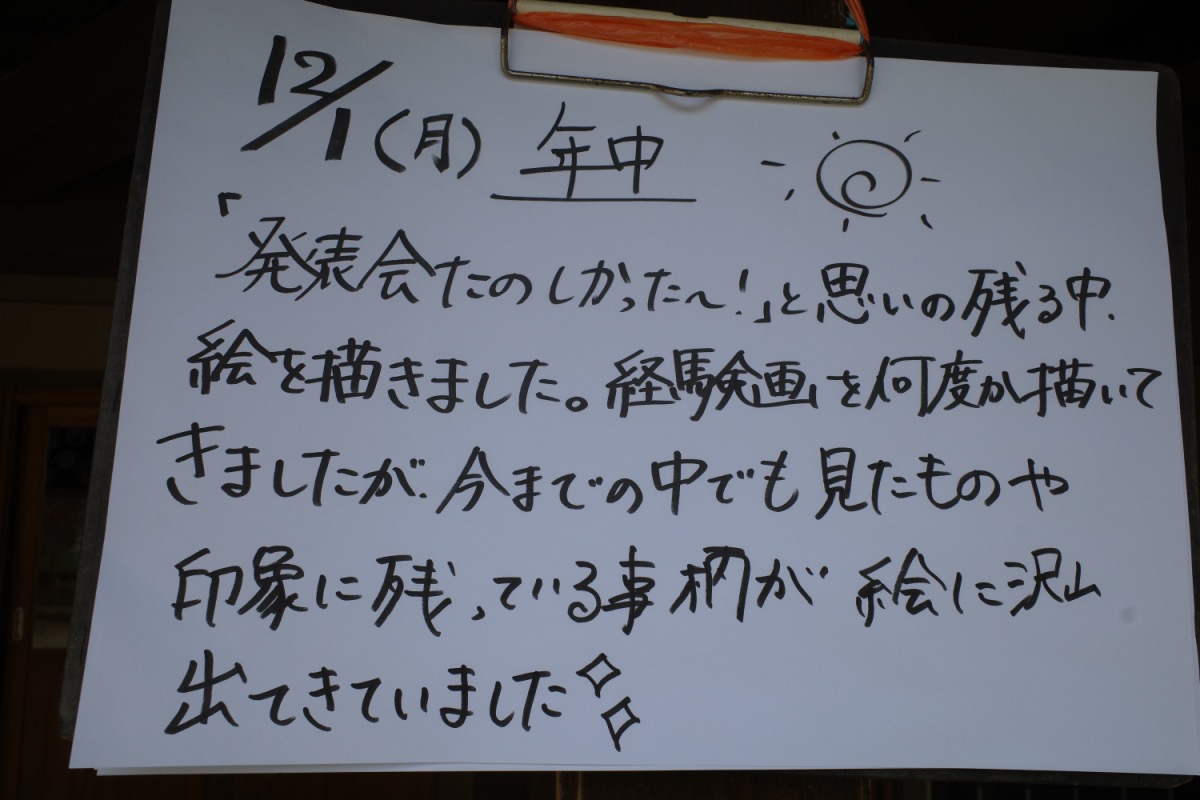 12/1(月) 年中
「発表会たのしかった〜!」と思いの残る中、
絵を描きました。経験画を何度か描いて
きましたが、今までの中でも見たものや
印象に残っている事柄が 絵に沢山
出てきていました